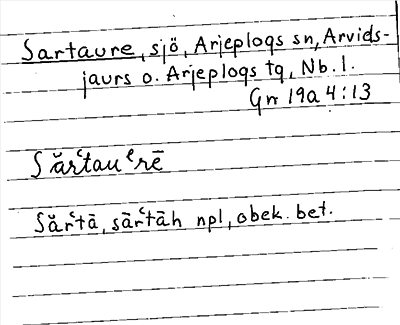 Sartaure, sjö, Arjeplogs sn, Arvids-
jaurs o. Arjeplogs tg, Nb. l.
Gn 19a 4:13
Sărʿtauᵉrē
Sărʿtā, sārʿtāh npl, obek. bet.